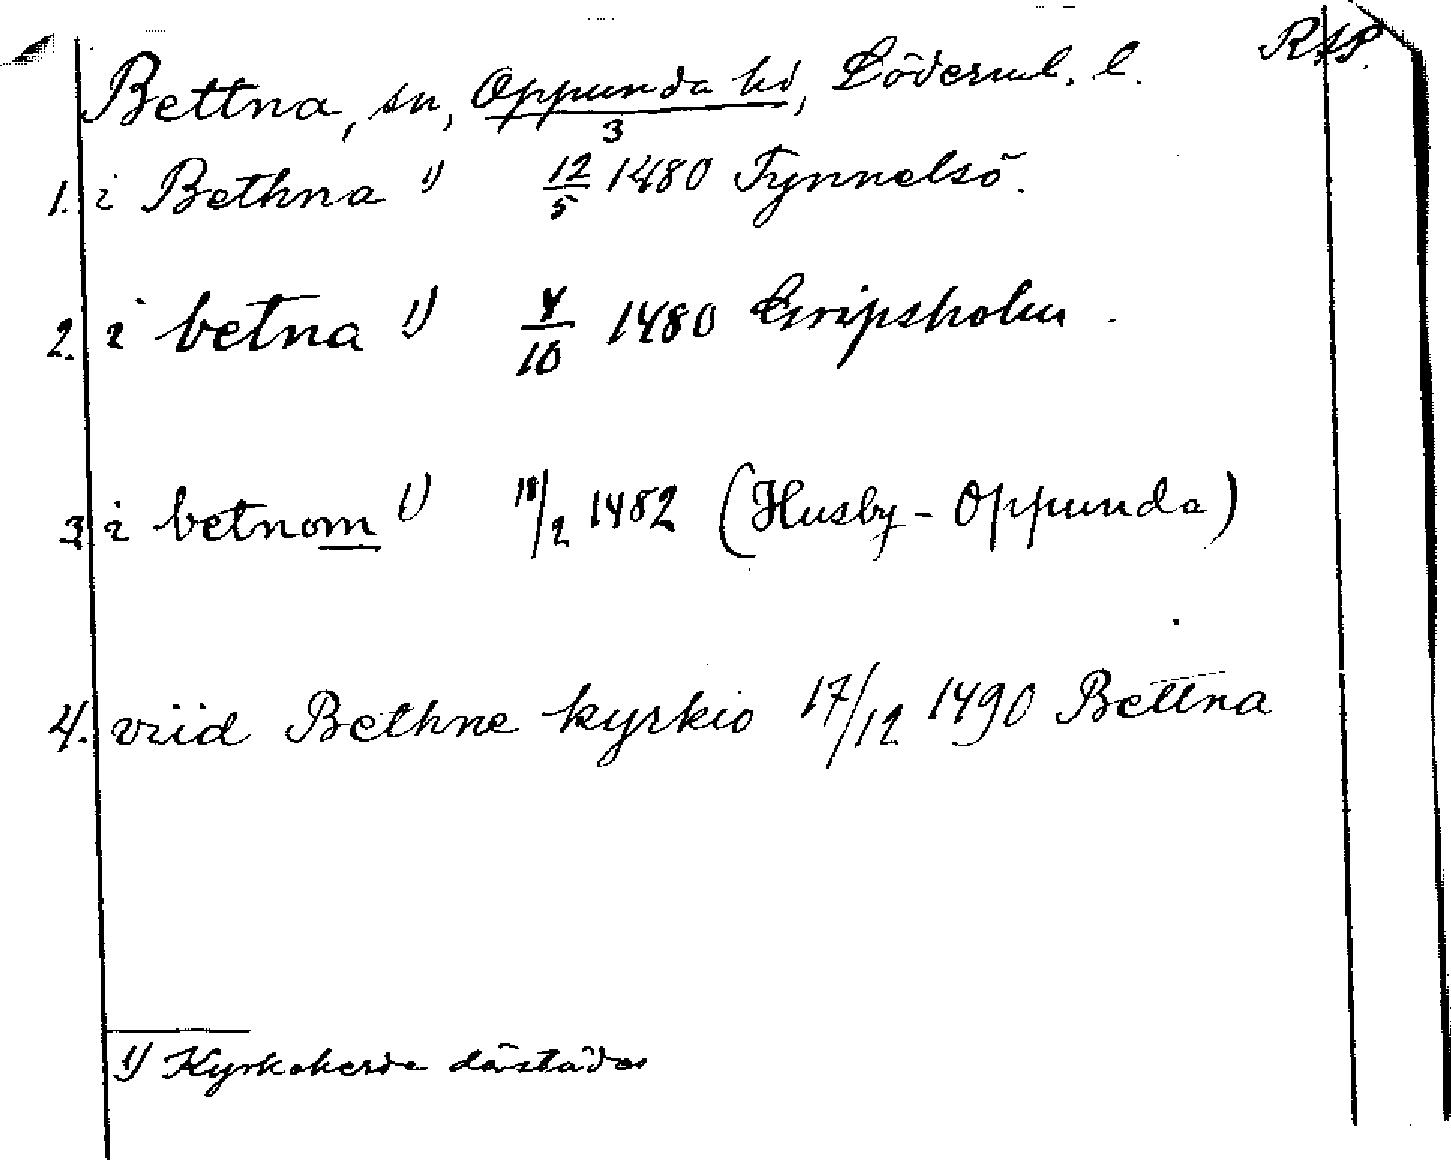 Bettna, sn, Oppunda hd, Söderml. l. RAP.
3
1. i Bethna 1) 12/5 1480 Tynnelsö.
2. i betna 1) 4/10 1480 Gripsholm.
3 i betnom 1) 18/2 1482 (Husby-Oppunda)
4. viid Bethne kyrkio 17/12 1490 Bettna
1) Kyrkoherde därstädes